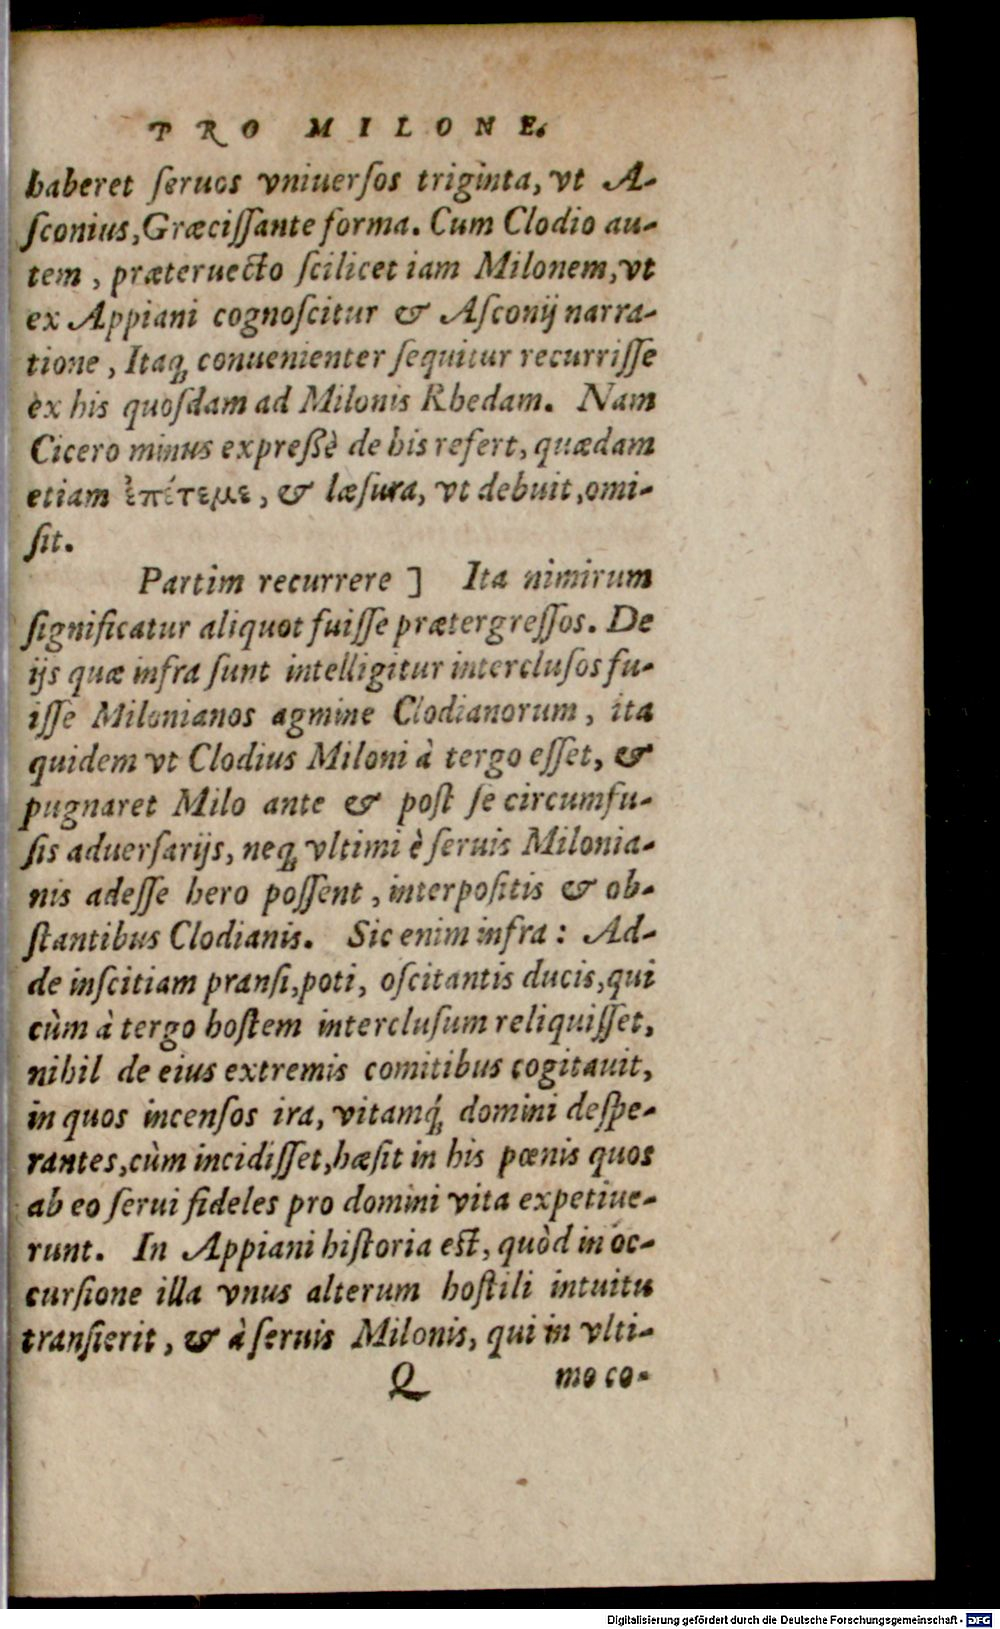 PRO MILONE.
haberet seruos vniuersos triginta, vt A-
sconius, Græcissante forma. Cum Clodio au-
tem, præteruecto scilicet iam Milonem, vt
ex Appiani cognoscitur & Asconij narra-
tione, Itaq; conuenienter sequitur recurrisse
ex his quosdam ad Milonis Rhedam. Nam
Cicero minus expressè de his refert, quædam
etiam ἐπίτεμε, & læsura, vt debuit, omi-
sit.
Partim recurrere ] Ita nimirum
significatur aliquot fuisse prætergressos. De
ijs quæ infra sunt intelligitur interclusos fu-
isse Milonianos agmine Clodianorum, ita
quidem vt Clodius Miloni à tergo esset, &
pugnaret Milo ante & post se circumfu-
sis aduersarijs, neq; vltimi è seruis Milonia-
nis adesse hero possent, interpositis & ob-
stantibus Clodianis. Sic enim infra: Ad-
de inscitiam pransi, poti, oscitantis ducis, qui
cùm à tergo hostem interclusum reliquisset,
nihil de eius extremis comitibus cogitauit,
in quos incensos ira, vitamq́; domini despe-
rantes, cùm incidisset, hæsit in his pœnis quos
ab eo serui fideles pro domini vita expetiue-
runt. In Appiani historia est, quòd in oc-
cursione illa vnus alterum hostili intuitu
transierit, & à seruis Milonis, qui in vlti-
Q mo co-
Digitalisierung gefördert durch die Deutsche Forschungsgemeinschaft - DFG